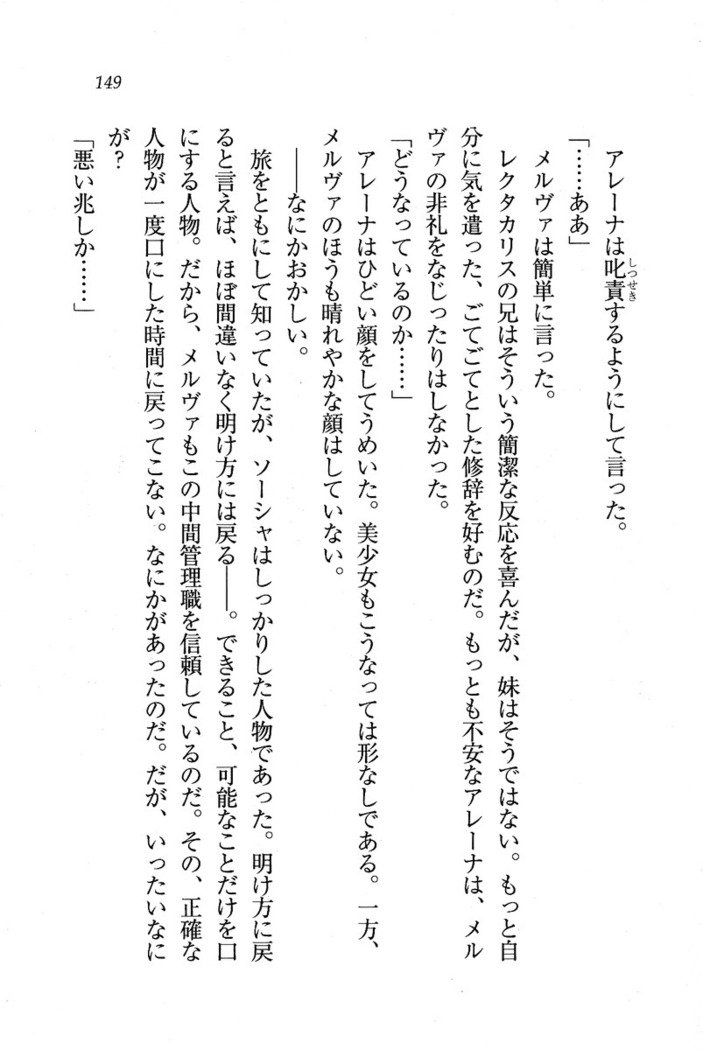 149
アレーナは叱責するようにして言った。
「……ああ」
メルヴァは簡単に言った。
レクタカリスの兄はそういう簡潔な反応を喜んだが、妹はそうではない。もっと自
分に気を遣った、ごてごてとした修辞を好むのだ。もっとも不安なアレーナは、メル
ヴァの非礼をなじったりはしなかった。
「どうなっているのか……」
アレーナはひどい顔をしてうめいた。美少女もこうなっては形なしである。一方、
メルヴァのほうも晴れやかな顔はしていない。
――なにかおかしい。
旅をともにして知っていたが、ソーシャはしっかりした人物であった。明け方に戻
ると言えば、ほぼ間違いなく明け方には戻る――。できること、可能なことだけを口
にする人物。だから、メルヴァもこの中間管理職を信頼しているのだ。その、正確な
人物が一度口にした時間に戻ってこない。なにかがあったのだ。だが、いったいなに
が?
「悪い兆しか……」